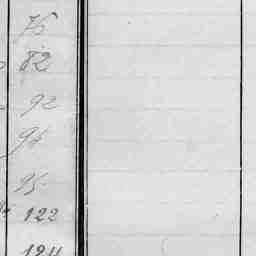 76
82
92
94
95
122
124